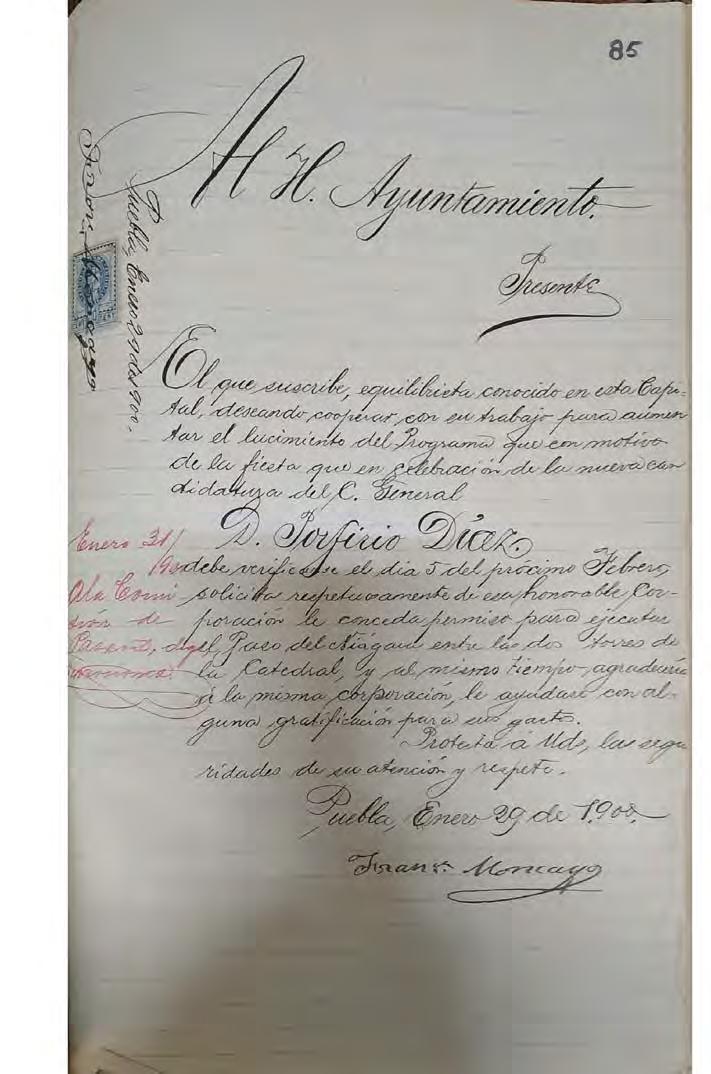 85
Al H. Ayuntamiento.
Presente
Puebla, Enero 29 de 1900.
Moncayo
El que suscribe, equilibrista conocido en esta Capi-
tal, deseando cooperar, con su trabajo para aumen
tar el lucimiento del Programa que con motivo
de la fiesta que en celebración de la nueva can
didatura del C. General
D. Porfirio Díaz.
debe verificarse el dia 5 del próximo Febrero,
solicita respetuosamente de esa honorable, Cor-
poración le conceda permiso para ejecutar
el Paso del Niágara entre las dos torres de
la Catedral, y al mismo tiempo, agradecería
á la misma corporación, le ayudara con al-
guna gratificación para sus gastos.
Protesta á Uds, las segu
ridades de su atención y respeto.
Puebla, Enero 29 de 1,900.
Franco. Moncayo
Enero 31/
900
A la Comi
sión de